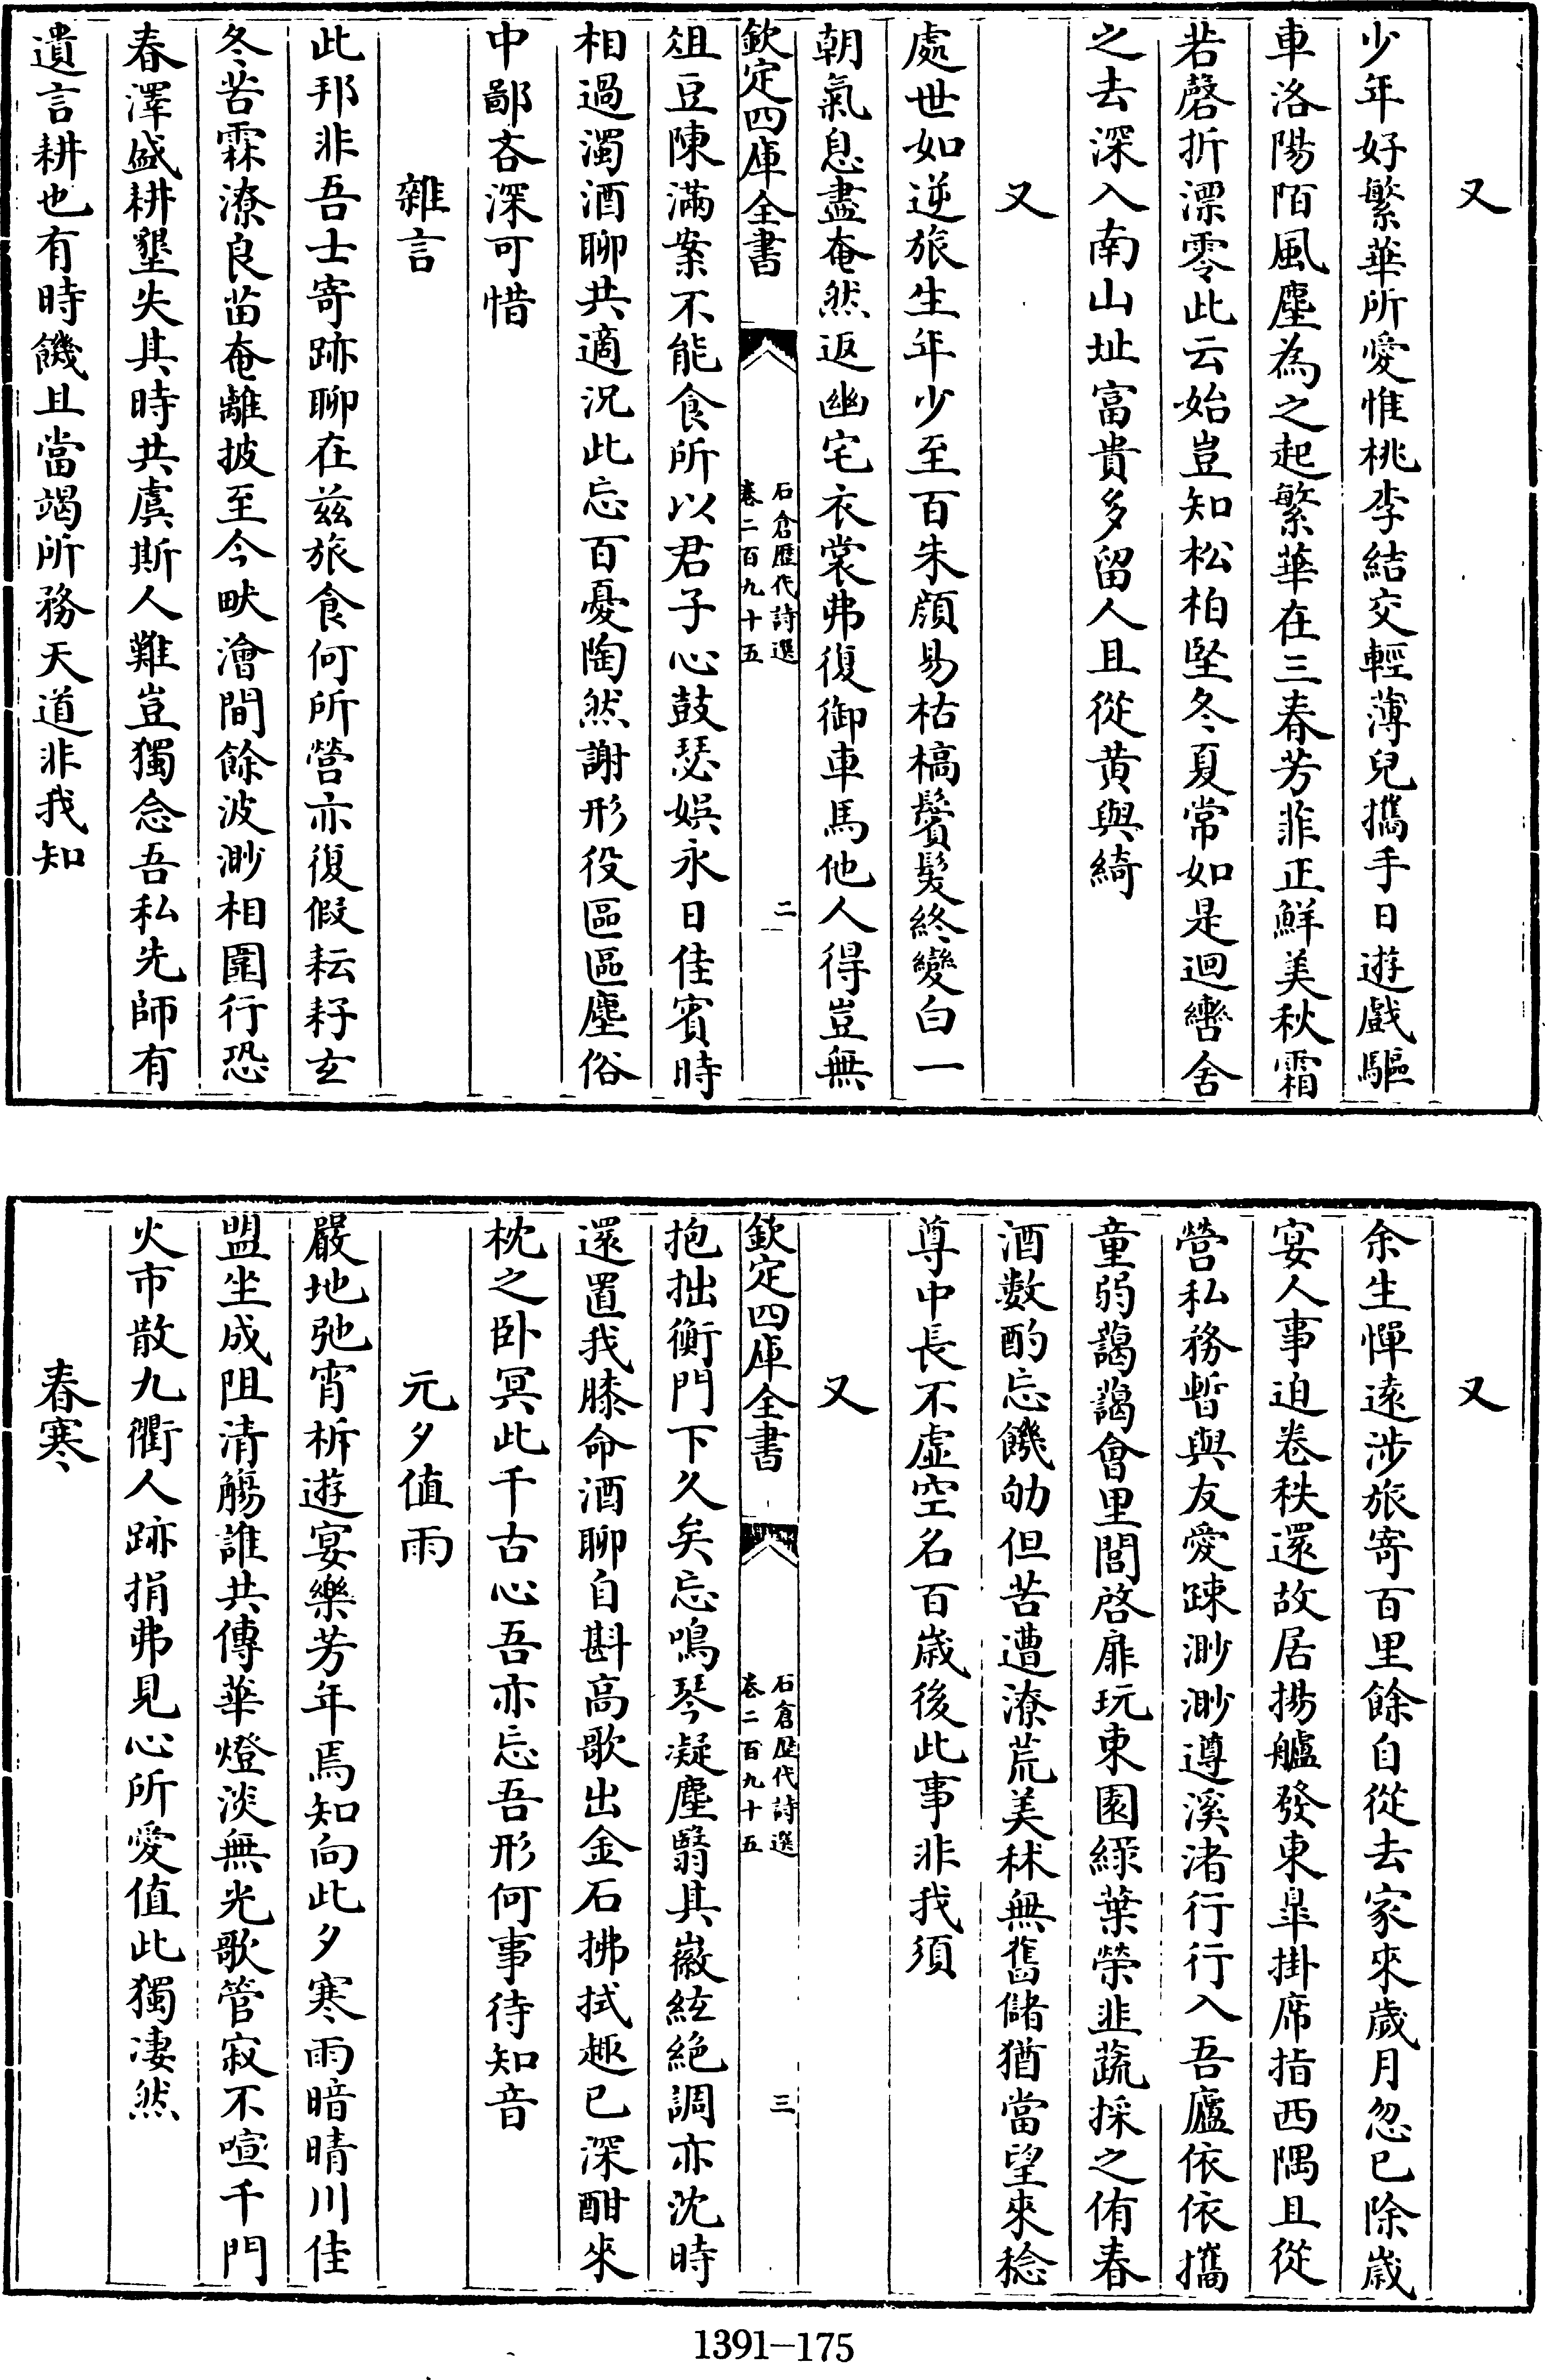 又
少年好繁華所愛惟桃李結交輕薄兒攜手日遊戲驅
車洛陽陌風塵為之起繁華在三春芳菲正鮮美秋霜
若磬折漂零此云始豈知松柏堅冬夏常如是迴轡舍
之去深入南山址富貴多留人且從黄與綺
又
處世如逆旅生年少至百朱顔易枯槁鬢髮終變白一
朝氣息盡奄然返幽宅衣裳弗復御車馬他人得豈無
欽定四庫全書
石倉歷代詩選
卷二百九十五
二
俎豆陳滿案不能食所以君子心鼓瑟娛永日佳賓時
相過濁酒聊共適況此忘百憂陶然謝形役區區塵俗
中鄙吝深可惜
雜言
此邦非吾士寄跡聊在兹旅食何所營亦復假耘耔玄
冬苦霖潦良苗奄離披至今畎澮間餘波渺相圍行恐
春澤盛耕墾失其時共虞斯人難豈獨念吾私先師有
遺言耕也有時饑且當竭所務天道非我知
又
余生憚遠涉旅寄百里餘自從去家來歲月忽已除歳
宴人事迫卷秩還故居揚艫發東臯掛席指西隅且從
營私務暫與友愛踈渺渺遵溪渚行行入吾廬依依攜
童弱藹藹會里閭啓扉玩東園綠葉榮韭蔬採之侑春
酒數酌忘饑劬但苦遭潦荒美秫無舊儲猶當望來稔
尊中長不虚空名百歳後此事非我須
又
欽定四庫全書
石倉歷代詩選
卷二百九十五
三
抱拙衡門下久矣忘鳴琴凝塵翳其徽絃絶調亦沈時
還置我膝命酒聊自斟高歌出金石拂拭趣已深酣來
枕之卧冥此千古心吾亦忘吾形何事待知音
元夕值雨
嚴地弛宵柝遊宴樂芳年焉知向此夕寒雨暗晴川佳
盟坐成阻清觴誰共傳華燈淡無光歌管寂不喧千門
火市散九衢人跡捐弗見心所愛值此獨凄然
春寒
1391-175